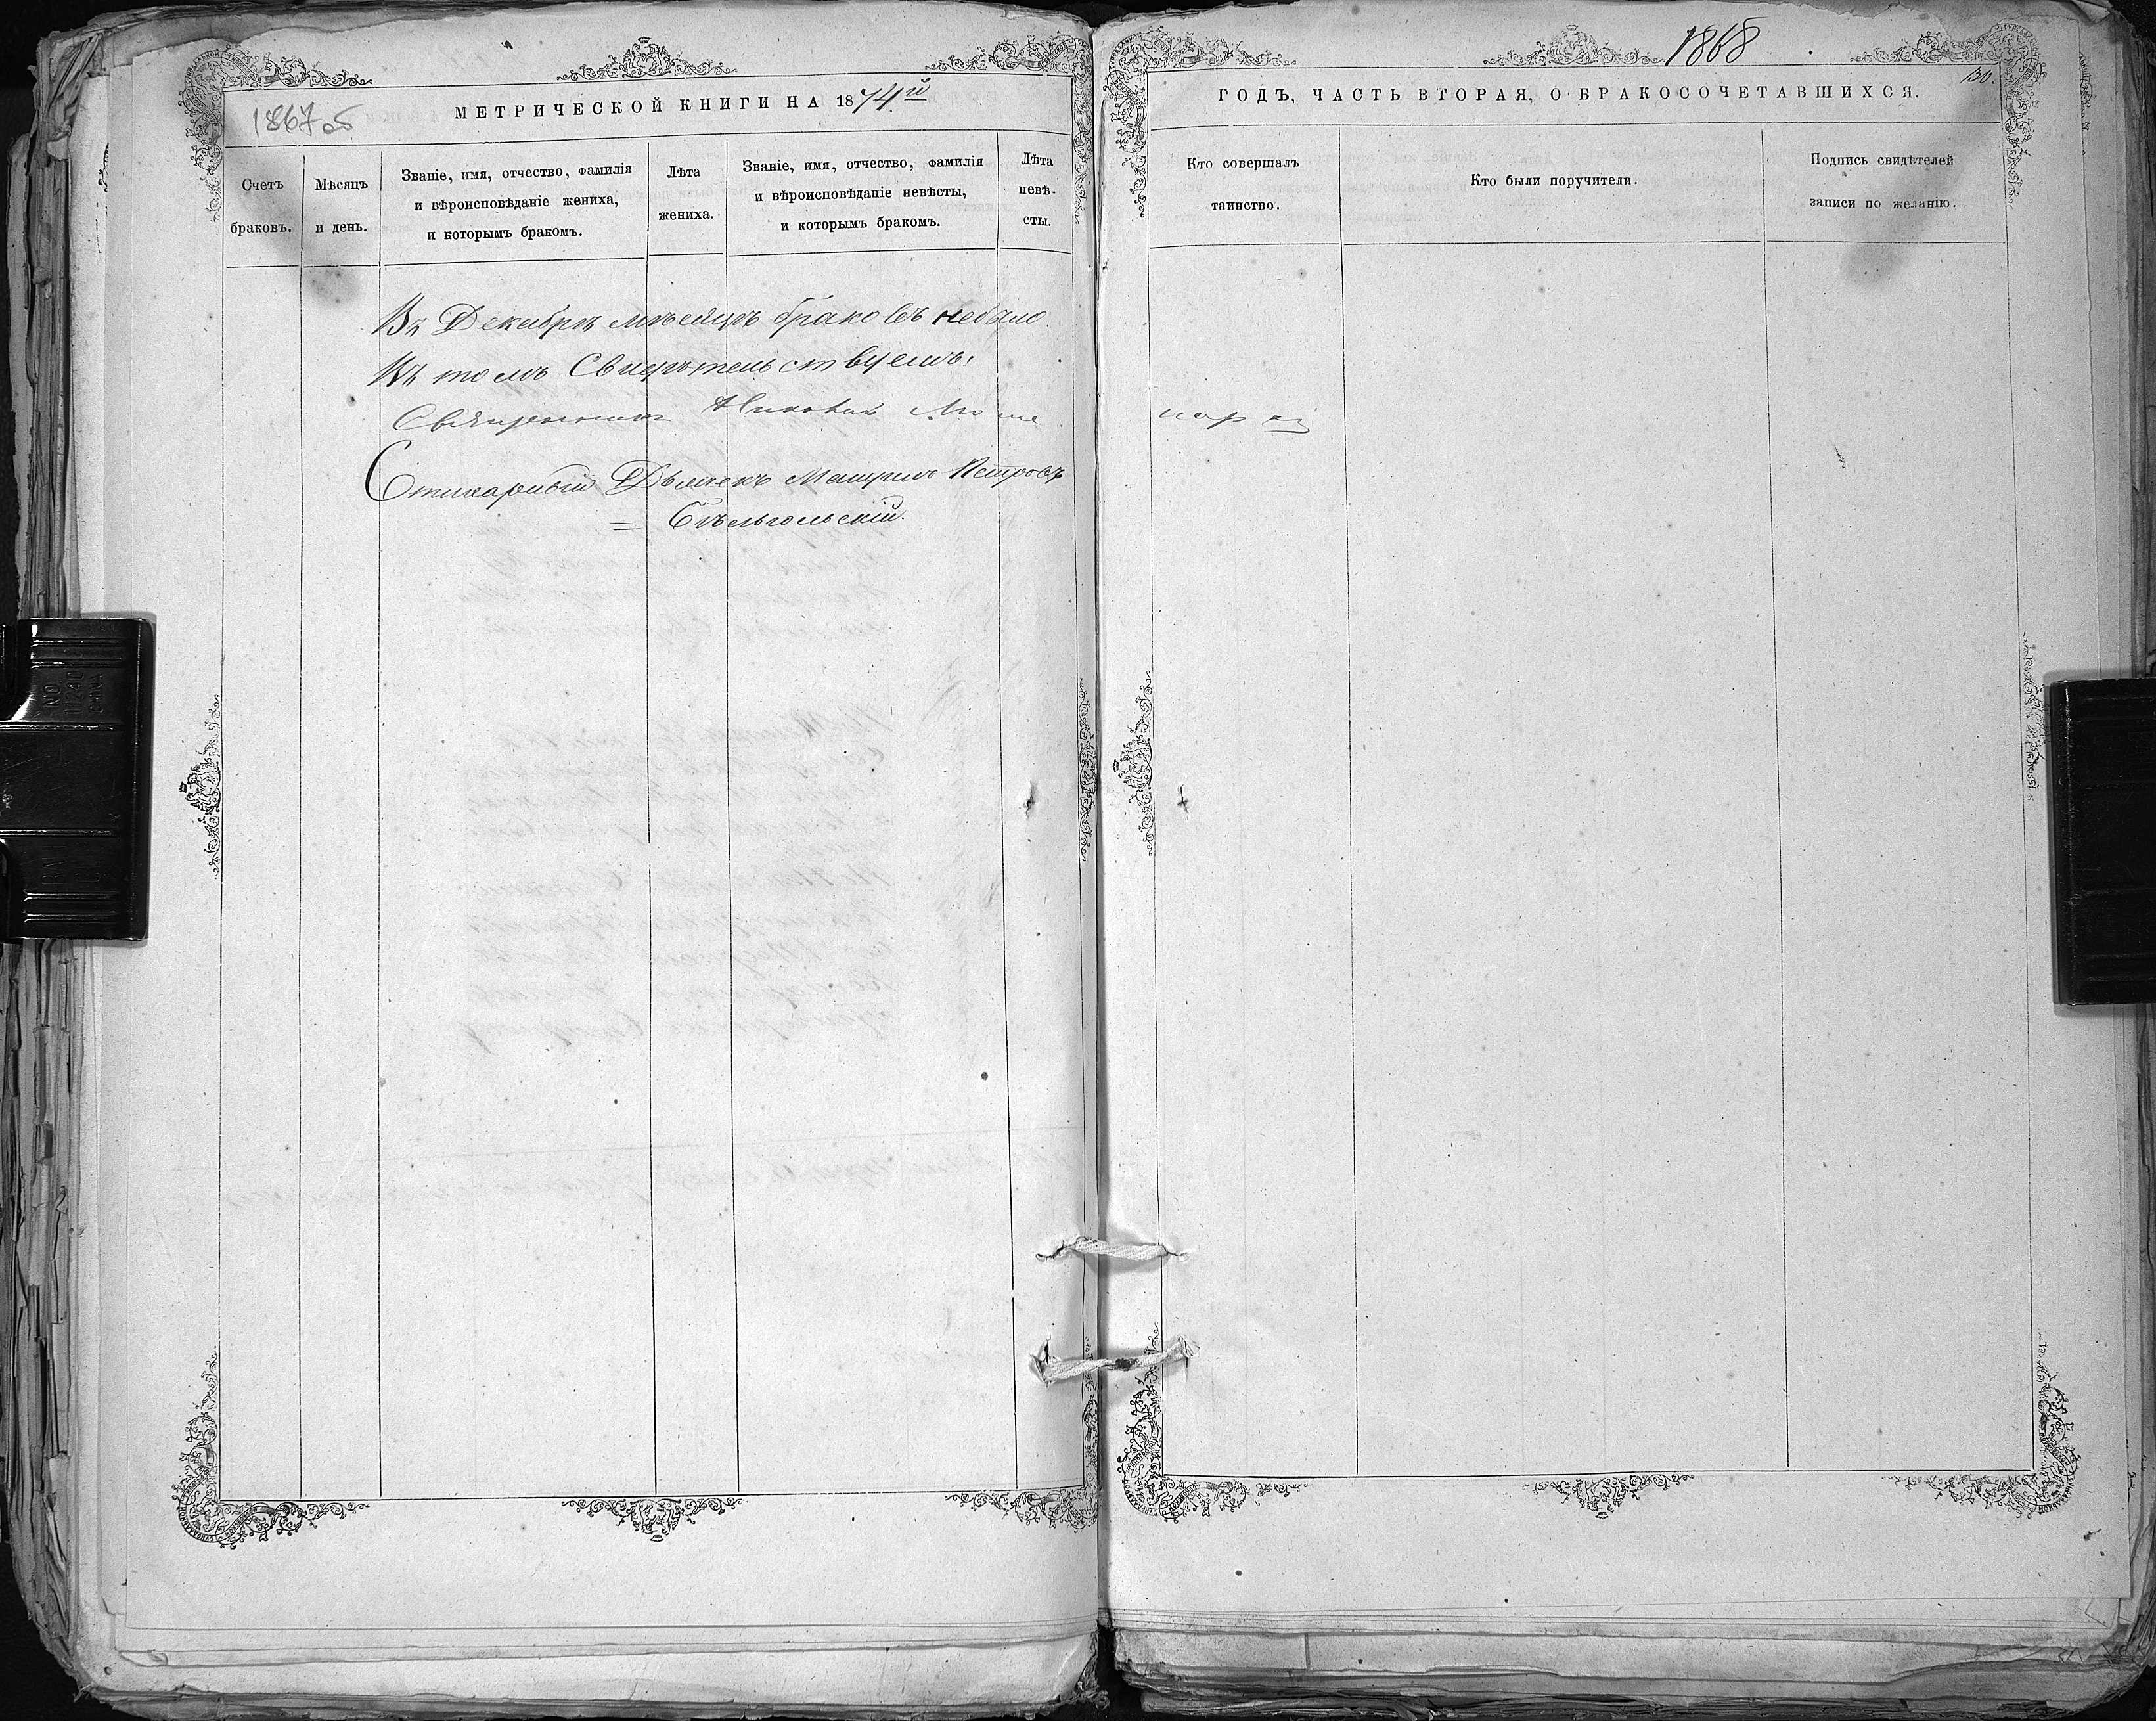 1867об
МЕТРИЧЕСКОЙ КНИГИ НА 1874й
Счетъ браковъ.
Мѣсяцъ и день.
Званіе, имя, отчество, фамилія
и вѣроисповѣданіе жениха,
и которымъ бракомъ.
Лѣта жениха.
Званіе, имя, отчество, фамилія
и вѣроисповѣданіе невѣсты,
и которымъ бракомъ.
Лѣта невѣ-
сты.
Въ Декабрѣ мѣсяцѣ браковъ небыло
Въ томъ Свидѣтельствуемъ:
Священникъ Николай
Стихарный Дьячекъ Петровъ
1868
130.
ГОДЪ, ЧАСТЬ ВТОРАЯ, О БРАКОСОЧЕТАВШИХСЯ.
Кто совершалъ
таинство.
Кто были поручители.
Подпись свидѣтелей
записи по желанію.